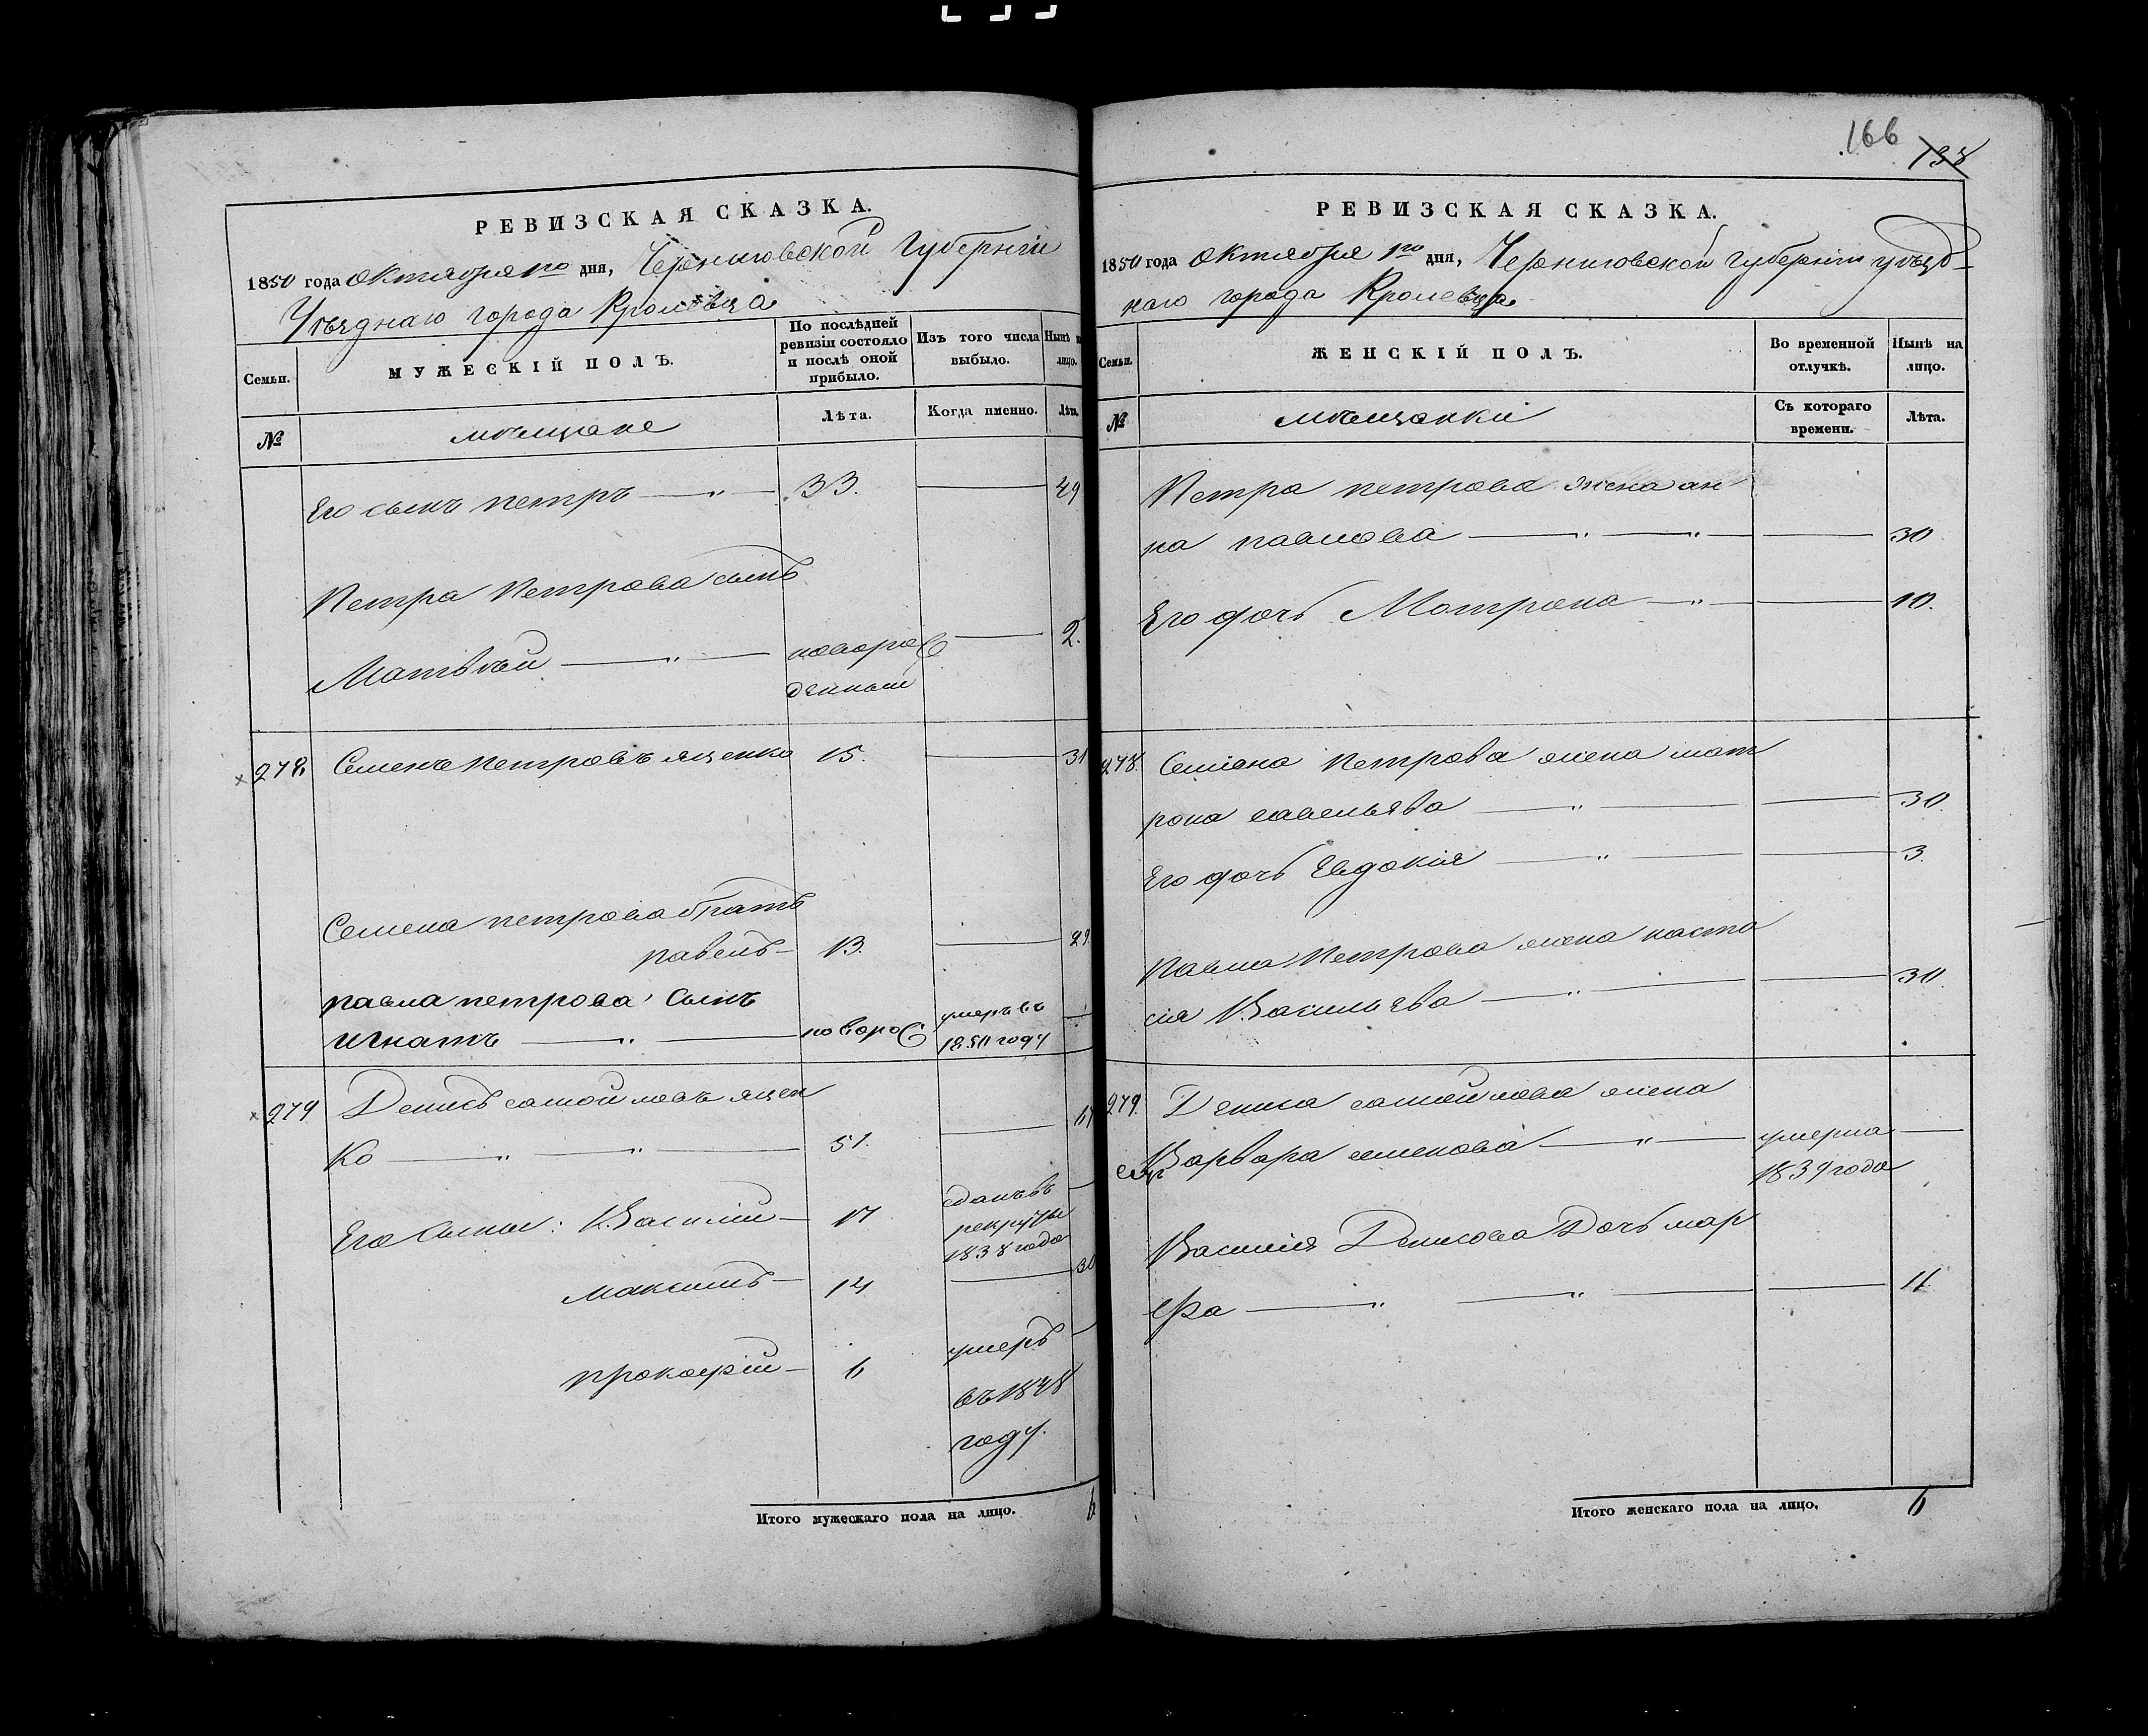 166
138
РЕВИЗСКАЯ СКАЗКА.
1850 года октября 1го дня, Черниговской Губерніи
Уѣзднаго города Кролевца
Семьи.
МУЖЕСКІЙ ПОЛЪ.
По послѣдней ревизіи состояло и послѣ оной прибыло.
Изъ того числа выбыло.
Нынѣ на лицо.
№
мѣщане
Лѣта.
Когда именно.
Лѣта.
Его сынъ петръ — " — 33. — 49
Петра Петрова сынъ
Матвѣй — " — новорож — 2.
денный
278. Семенъ Петровъ яценко 15. — 31
Семена петрова братъ
павелъ — 13. — 29.
павла петрова сынъ
игнатъ — " — новорож умеръ въ —
1850 году
279 Денисъ самойловъ яцен
ко — " — " — 51. — 67
Его сыны: Василій — 17 сданъ въ —
рекруты
1838 года
максимъ — 14 — 30
прокофій — 6 умеръ —
въ 1848
году.
Итого мужескаго пола на лицо. 6
РЕВИЗСКАЯ СКАЗКА.
1850 года октября 1го дня, Черниговской губерніи уѣзд-
наго города Кролевца
Семьи.
ЖЕНСКІЙ ПОЛЪ.
Во временной отлучкѣ.
Нынѣ на лицо.
№
мѣщанки
Съ котораго времени.
Лѣта.
Петра петрова жена ан
на павлова — " — " — 30
Его дочь Мотрона — " — 10.
278. Семена Петрова жена мат
рона савельева — " — 30.
Его дочь Евдокія — " — 3.
Павла Петрова жена наста
сія Васильева — " — 30.
279. Дениса самойлова жена
Варвара семенова — " — умерла —
1839 года
Василія Денисова Дочь мар
фа — " — " — 11
Итого женскаго пола на лицо. 6